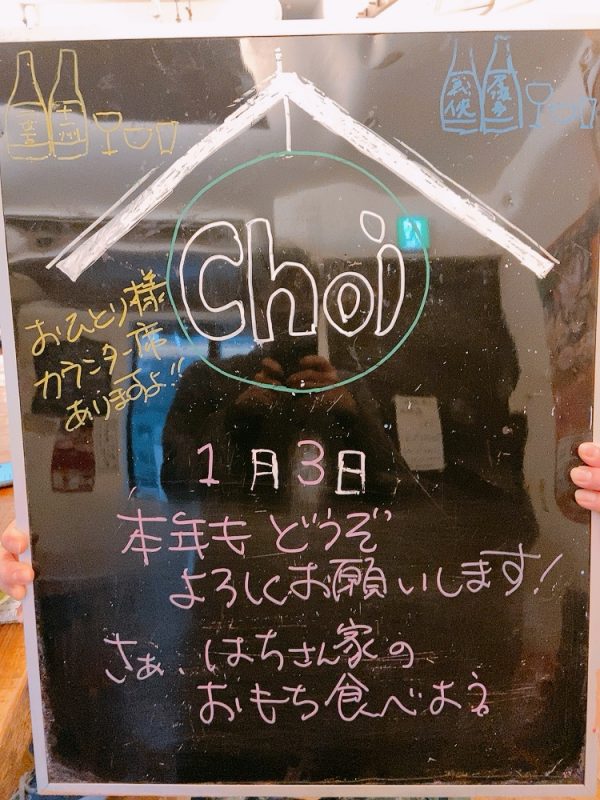 十二州
義侠
Choi
おひとり様
カウンター席
ありますよ!!
1月3日
本年もどうぞ
よろしくお願いします!
さぁ、はちさん家の
おもち食べよう